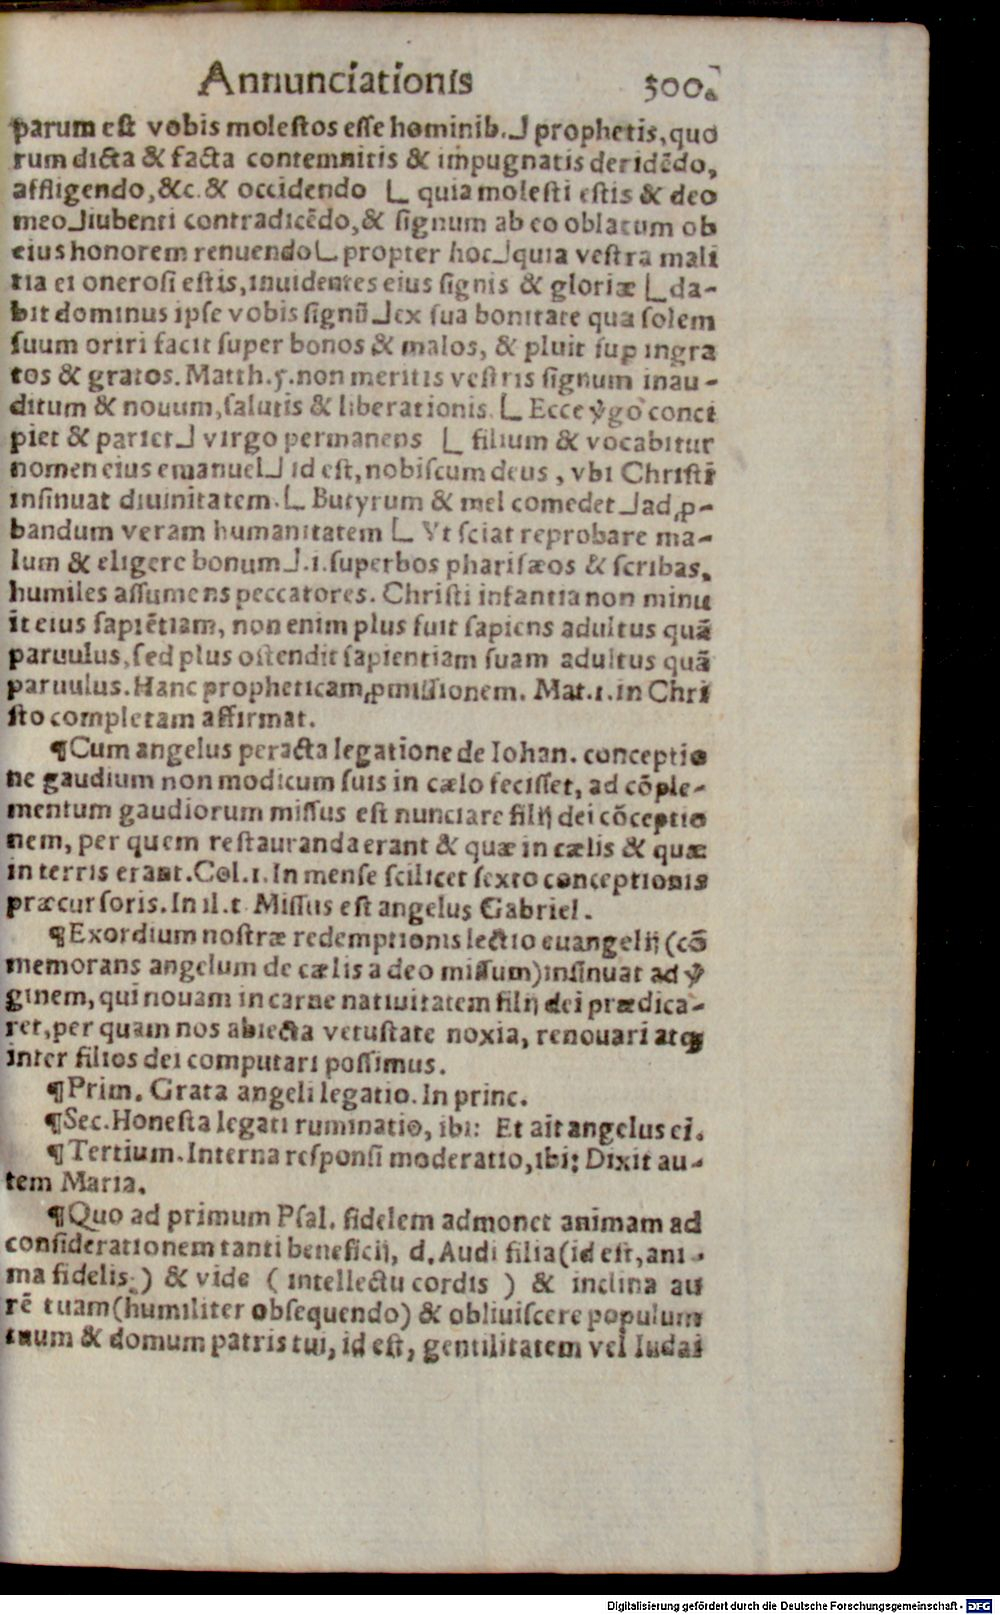 Annunciationis 300.
parum est vobis molestos esse hominib.⅃ prophetis, quo
rum dicta & facta contemnitis & impugnatis deridẽdo,
affligendo, &c. & occidendo ⎿ quia molesti estis & deo
meo⅃iubenti contradicẽdo, & signum ab eo oblatum ob
eius honorem renuendo⎿ propter hoc⅃quia vestra mali
tia ei onerosi estis, inuidentes eius signis & gloriæ ⎿da-
bit dominus ipse vobis signũ⅃ex sua bonitate qua solem
suum oriri facit super bonos & malos, & pluit sup ingra
tos & gratos. Matth.5.non meritis vestris signum inau-
ditum & nouum, salutis & liberationis.⎿ Ecce v̔go conci
piet & pariet⅃ virgo permanens ⎿ filium & vocabitur
nomen eius emanuel⅃ id est, nobiscum deus , vbi Christi
insinuat diuinitatem.⎿ Butyrum & mel comedet⅃ad ꝓ-
bandum veram humanitatem ⎿ Vt sciat reprobare ma-
lum & eligere bonum⅃.i.superbos pharisæos & scribas,
humiles assumens peccatores. Christi infantia non minu
it eius sapiẽtiam, non enim plus fuit sapiens adultus quã
paruulus, sed plus ostendit sapientiam suam adultus quã
paruulus. Hanc propheticam ꝓmissionem. Mat.1.in Chri
sto completam affirmat.
¶Cum angelus peracta legatione de Iohan. conceptio
ne gaudium non modicum suis in cælo fecisset, ad cõple-
mentum gaudiorum missus est nunciare filij dei cõceptio
nem, per quem restauranda erant & quæ in cælis & quæ
in terris erant. Col.1. In mense scilicet sexto conceptionis
præcursoris. In il.t Missus est angelus Gabriel.
¶Exordium nostræ redemptionis lectio euangelij (cõ
memorans angelum de cælis a deo missum) insinuat ad v̔
ginem, qui nouam in carne natiuitatem filij dei prædica-
ret, per quam nos abiecta vetustate noxia, renouari atq;
inter filios dei computari possimus.
¶Prim. Grata angeli legatio. In princ.
¶Sec. Honesta legati ruminatio, ibi: Et ait angelus ei.
¶Tertium. Interna responsi moderatio, ibi: Dixit au-
tem Maria.
¶Quo ad primum Psal. fidelem admonet animam ad
considerationem tanti beneficij, d. Audi filia (id est, ani-
ma fidelis) & vide ( intellectu cordis ) & inclina au
rẽ tuam (humiliter obsequendo) & obliuiscere populum
tuum & domum patris tui, id est, gentilitatem vel Iudai
Digitalisierung gefördert durch die Deutsche Forschungsgemeinschaft - DFG